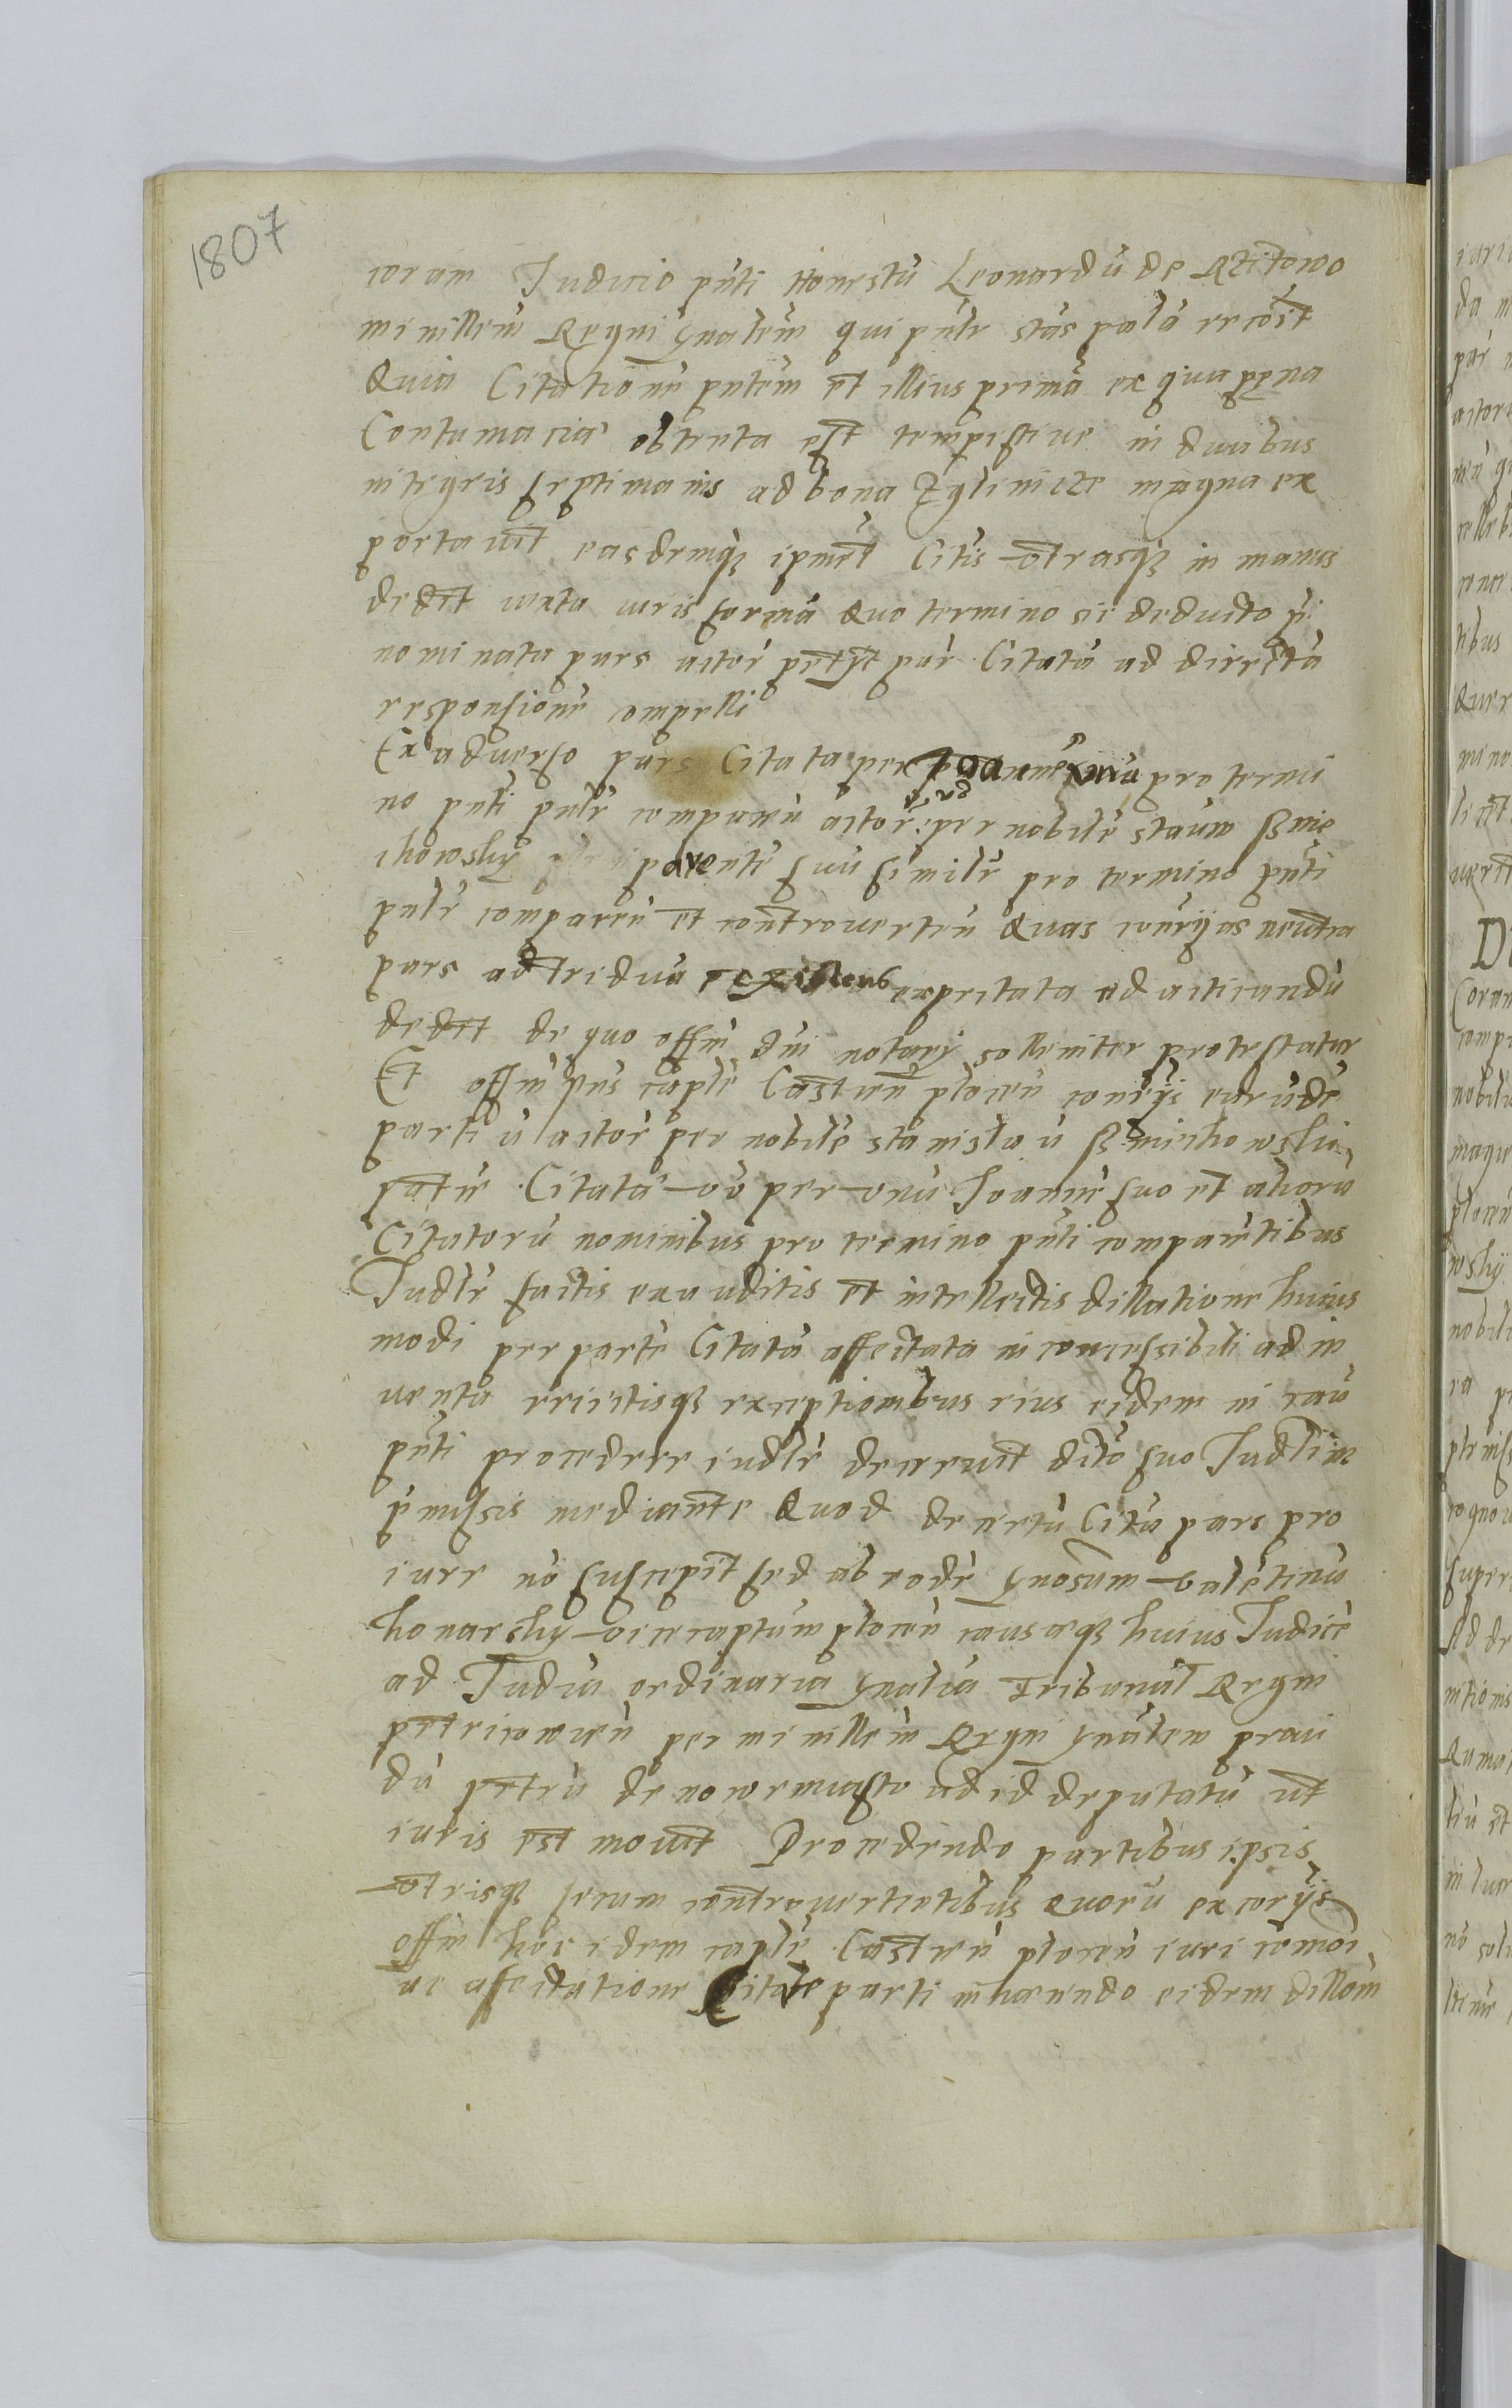 1807
coram Judicio pnti Honestu Leonardu de Rzitowo
minillem Regni gnalem qui pnlr stas pala recoit
Quia Citatione pntem et illius prima ex qua pena
Contumacia obtenta est tempestive in duabus
integris septimanis ad bona Zglinicze magna ex
portauit easdemq ipmet Citis vtrasq in manus
dedit iuxta iuris forma Quo termino sic deducto p
nominata pars actor petyt par Citata ad directa
responsione compelli
Ex aduerso pars Citata per Joanne vnu pro termi
no pnti pnlr comparen actor per nobile stanis Smie
chowsky parente suu similr pro termino pnti
pnlr comparen et controuerten Quas conrijas neutra
pars ad tridua existens expectata ad acticandu
dedit de quo offm dni notarij solleniter protestatur
Et offm pns caple Castren plocen conrijs earude
partiu actor per nobile stanislau Smiechowski
patre Citata vo per vnu Joanne suo et alioru
Citatoru nominibus pro termino pnti comparentibus
Judlr factis exauditis et intellectis dillatione huius
modi per parte Citata affectata in concessibili ad in
uenta reiectisq exceptionibus eius eidem in cau
pnti procedere iudlr decreuit dcto suo Judli in
pmissis mediante Quod decretu Cita pars pro
iure no suscepit sed ab eode gnosum valetinu
konarsky vicecaptum plocen causaeq huius Judice
ad Judia ordinaria gnalia Tribunal Regni
petricouien per minillem Regni gnalem proui
du petru de nowemiasto ad id deputatu ut
iuris est mouit Procedendo partibus ipsis
vtrisq secum controuertentibus Quoru ex corijs
offm hoc idem caple Castren plocen iuri comoi
ac affectatione Citate parti inhaerendo eidem dillom